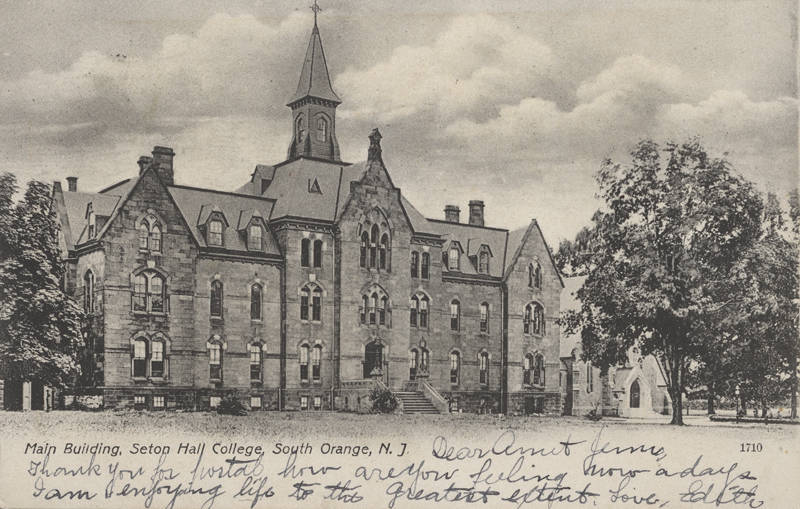 Main Building, Seton Hall College, South Orange, N. J. Dear Aunt Jenny 1710
Thank you for postal how are you feeling now a days
I am enjoying life to the greatest extent. Love, Edith